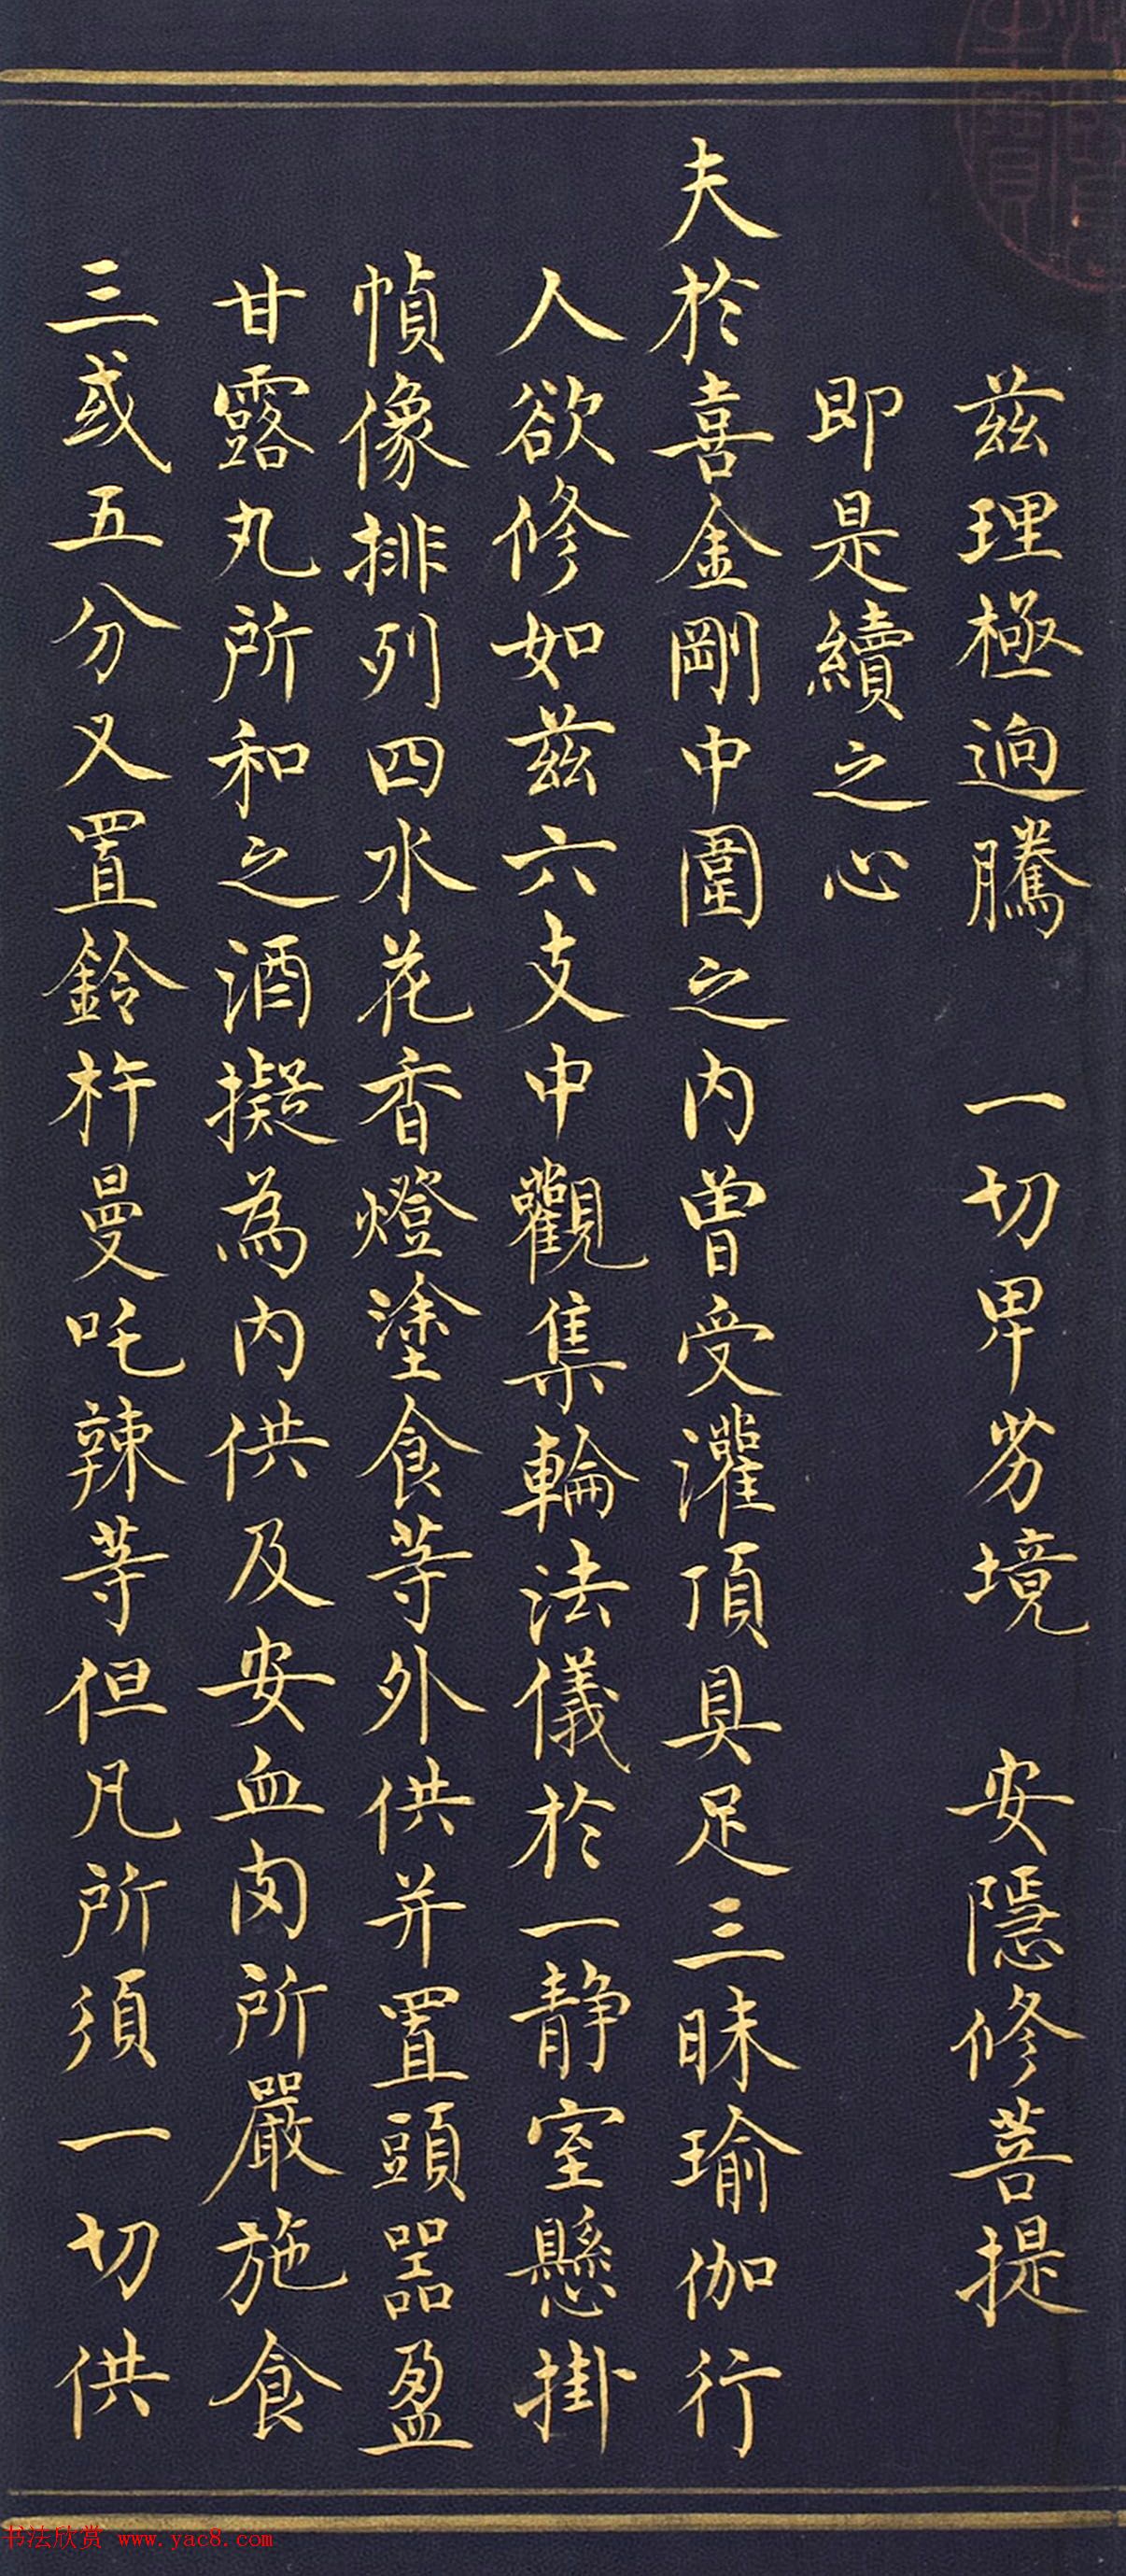 茲理極逈騰　一切卑劣境　安隱修菩提
即是續之心
夫於喜金剛中圍之內曾受灌頂具足三昧瑜伽行
人欲修如茲六支中觀集輪法儀於一靜室懸掛
幀像排列四水花香燈塗食等外供并置頭器盈
甘露丸所和之酒擬為內供及安血肉所嚴施食
三或五分又置鈴杵曼吒辣等但凡所須一切供
书法欣赏 www.yac8.com